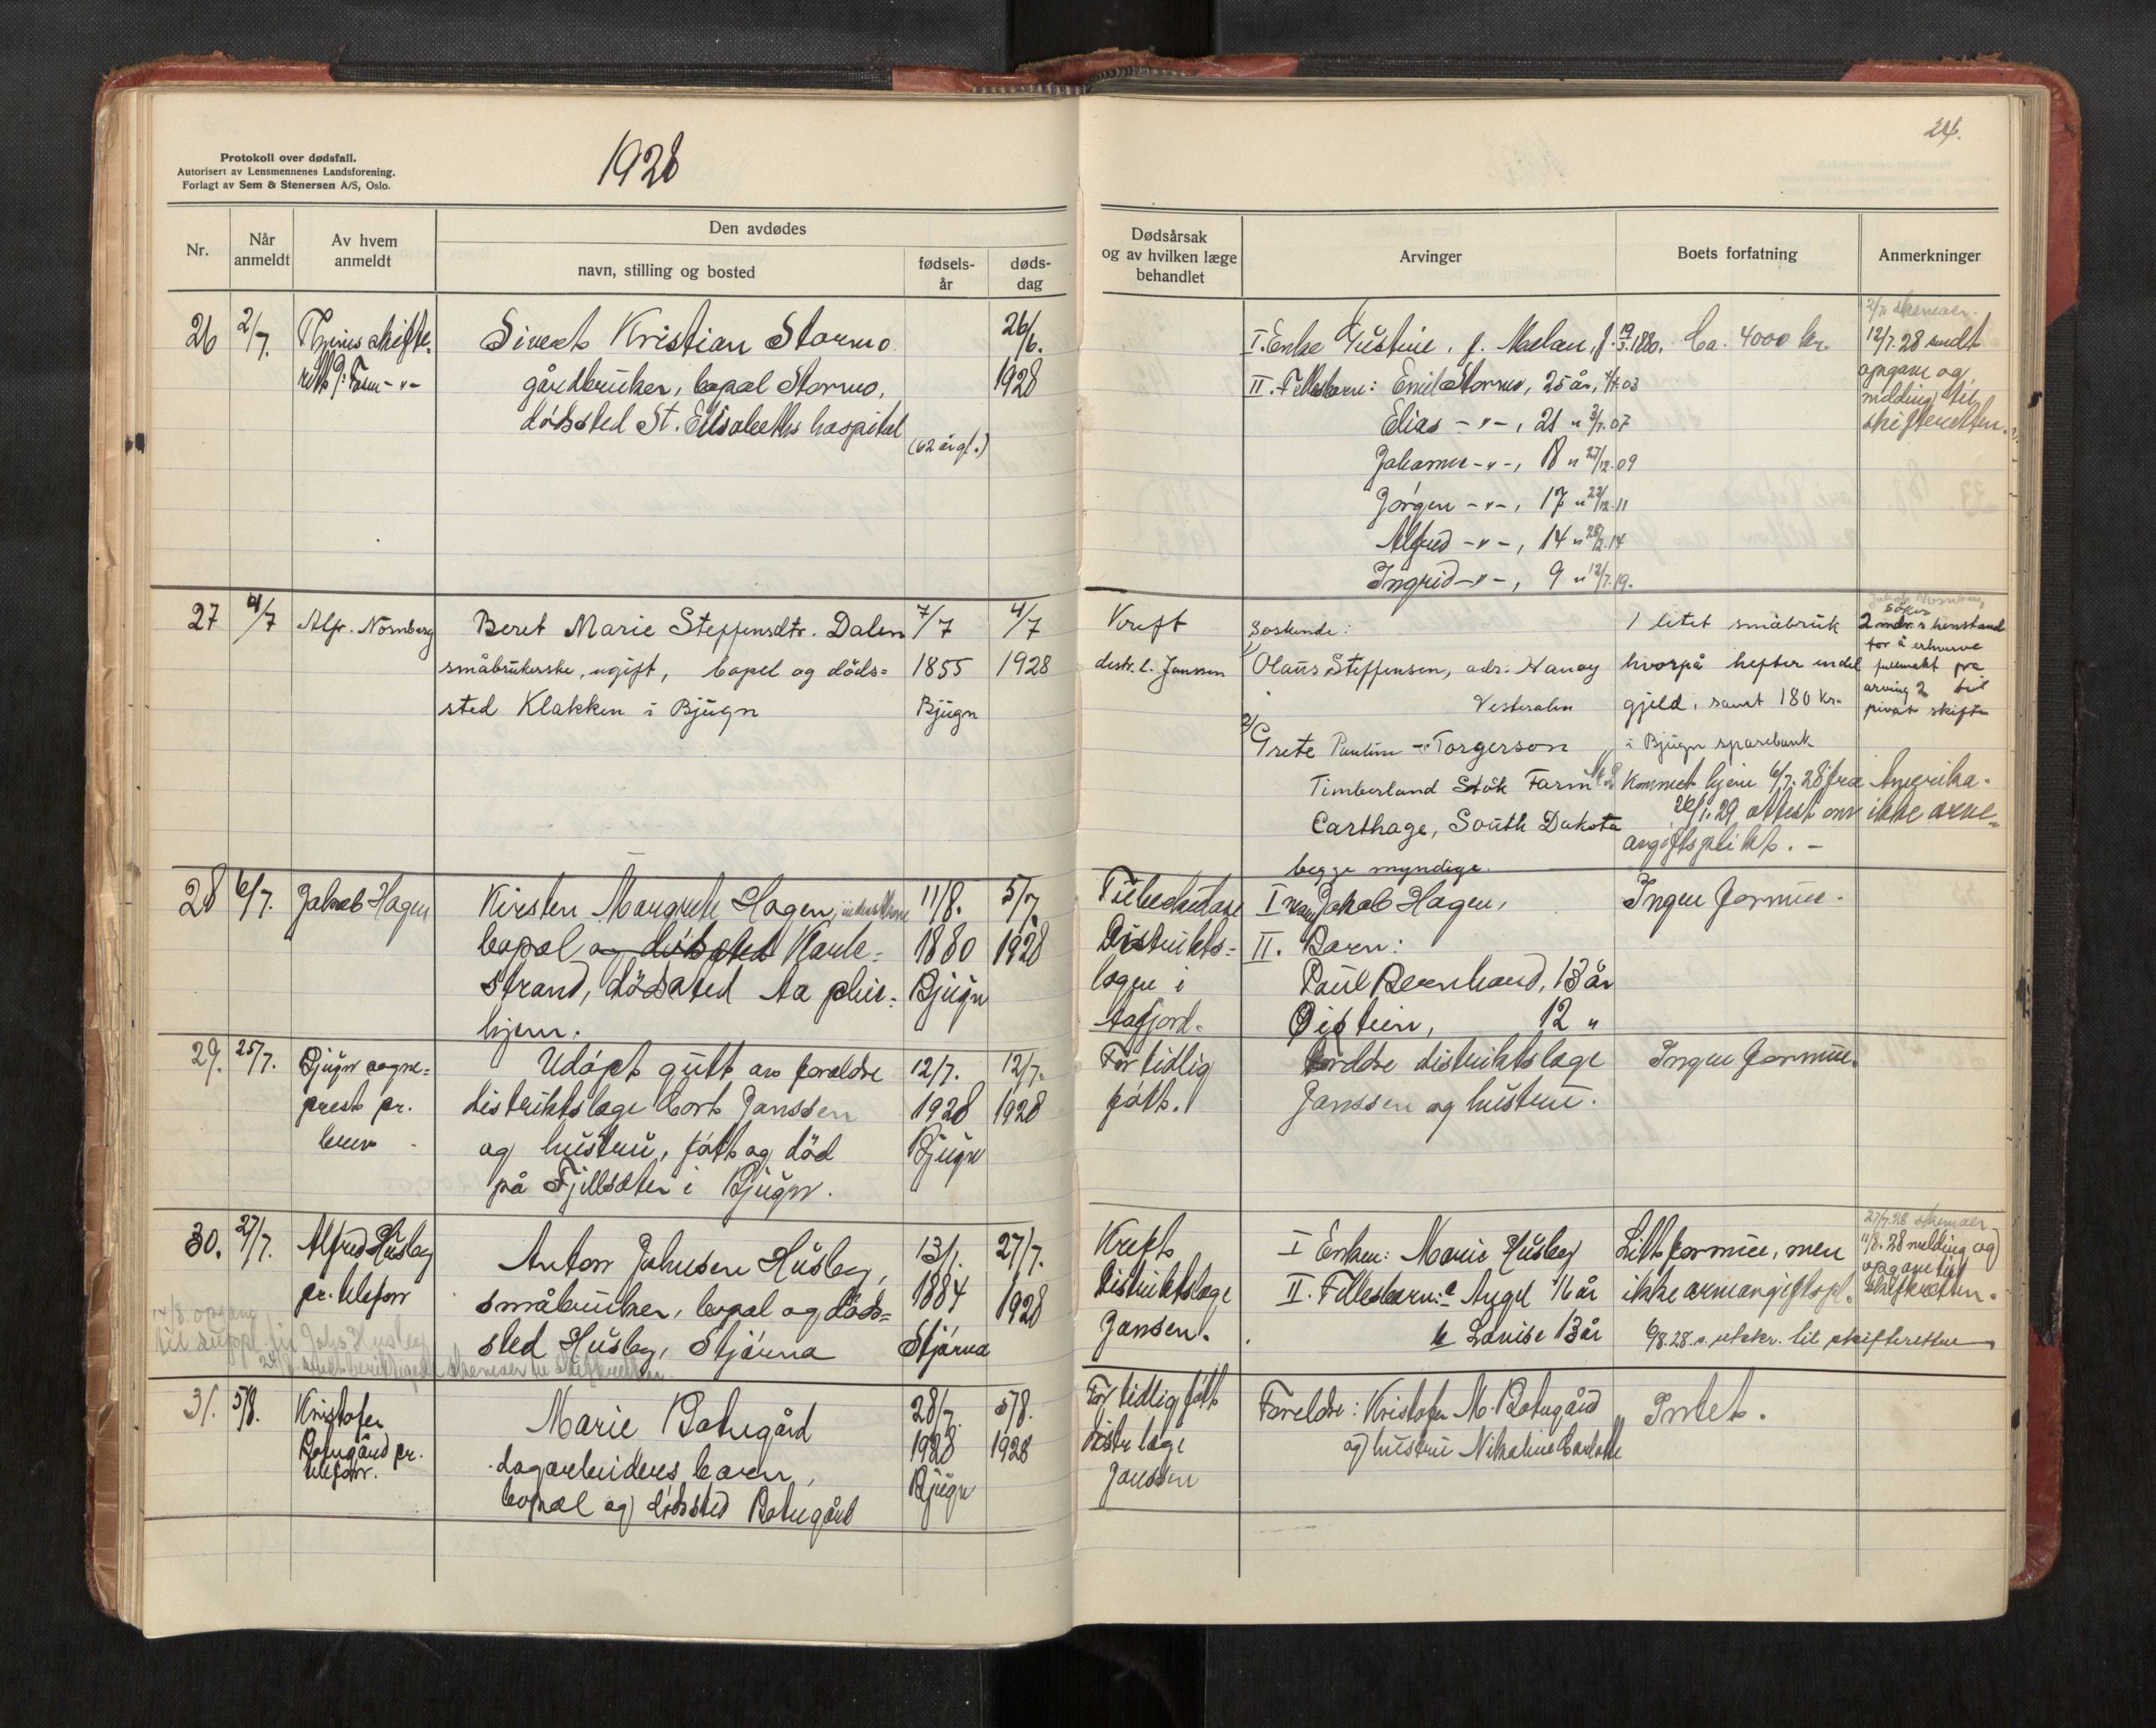 Protokoll over dødsfall.
Autorisert av Lensmennenes Landsforening.
Forlagt av Sem & Stenersen A/S, Oslo.
1928
Nr.
Når anmeldt
Av hvem anmeldt
Den avdødes
navn, stilling og bosted
fødsels-
år
døds-
dag
26 2/7. skifte- Sivert Kristian Stormo 26/6.
gårdbruker, bopæl Stormo, 1928
dødssted St. Elisabeths hospital
(62 år gl.)
27 4/7 Alfr. Nornberg Beret Marie Steffensdtr. Dalen 7/7 4/7
småbrukerske, ugift, bopel og döds= 1855 1928
sted Klakken i Bjugn Bjugn
28 6/7. Jakob Hagen Kirsten Margrete Hagen, 11/8. 5/7.
bopæl og dödssted 1880 1928
strand, dödssted Aa pleie- Bjugn
hjem.
29. 25/7. Bjugn sogne= Udöpt gutt av foreldre 12/7. 12/7.
prest pr. distriktslæge Cort Janssen 1928 1928
brev og hustru, født og död Bjugn
på Fjellsæter i Bjugn.
30. 27/7. Alfred Husby Anton Johnsen Husby, 13/1. 27/7.
pr. telefon småbruker, bopæl og döds= 1884 1928
sted Husby, Stjørna Stjørna
14/8. opgave
til suppl. fra Johs Husby
31. 5/8. Kristofer Marie Botngård 28/7. 5/8.
Botngård pr. dagarbeiders barn, 1928 1928
telefon. bopæl og dödssted Botngård Bjugn
24.
Dødsårsak
og av hvilken læge
behandlet
Arvinger
Boets forfatning
Anmerkninger
I. Enke Gustine, f. Melan, f. 19/3.1880. Ca. 4000 kr. 2/7. skemaer.
12/7.28 sendt
II. Fellesbarn: Emil Stormo, 25 år, 4/7.03 opgave og
Elias -"-, 21 " 3/7.07 melding til
skifteretten.
Johannes -"-, 18 " 27/12.09
Jörgen -"-, 17 " 22/12.11
Alfred -"-, 14 " 28/2.14
Ingrid -"-, 9 " 12/7.19.
Kreft Söskende: 1 litet småbruk söker
2 mdr.s henstand
distr. l. Janssen 1/ Olaus Steffensen, adr. Nanöy hvorpå hefter endel for å erhverve
fullmakt fra
Vesterålen gjeld, samt 180 kr. arving 2 til
privat skifte
2/ Grete Pauline -"- Torgerson i Bjugn sparebank
Timberland Stök Farm Kommet hjem 6/7.28 fra Amerika.
Carthage, South Dakota 26/1.29 attest om ikke arve=
begge myndige. avgiftsplikt. -
Tuberkulose I Jakob Hagen, Ingen formue.
Distrikts= II. Barn:
lægen i Paul Bernhard, 13 år
Aafjord. Oistein, 12 "
For tidlig Foreldre distriktslæge Ingen formue.
født. Janssen og hustru.
Kreft I Enken: Marie Husby Litt formue, men 27/7.28 skemaer
11/8.28 melding og
Distriktslæge II. Fellesbarn: a Aagot 16 år ikke arveavgiftspl. opgave til
skifteretten.
Jansen. b Lovise 13 år 6/8.28. s. utskr. til skifteretten
For tidlig født Foreldre: Kristofer M. Botngård Intet.
distr. læge og hustru Nikoline Charlotte
Janssen